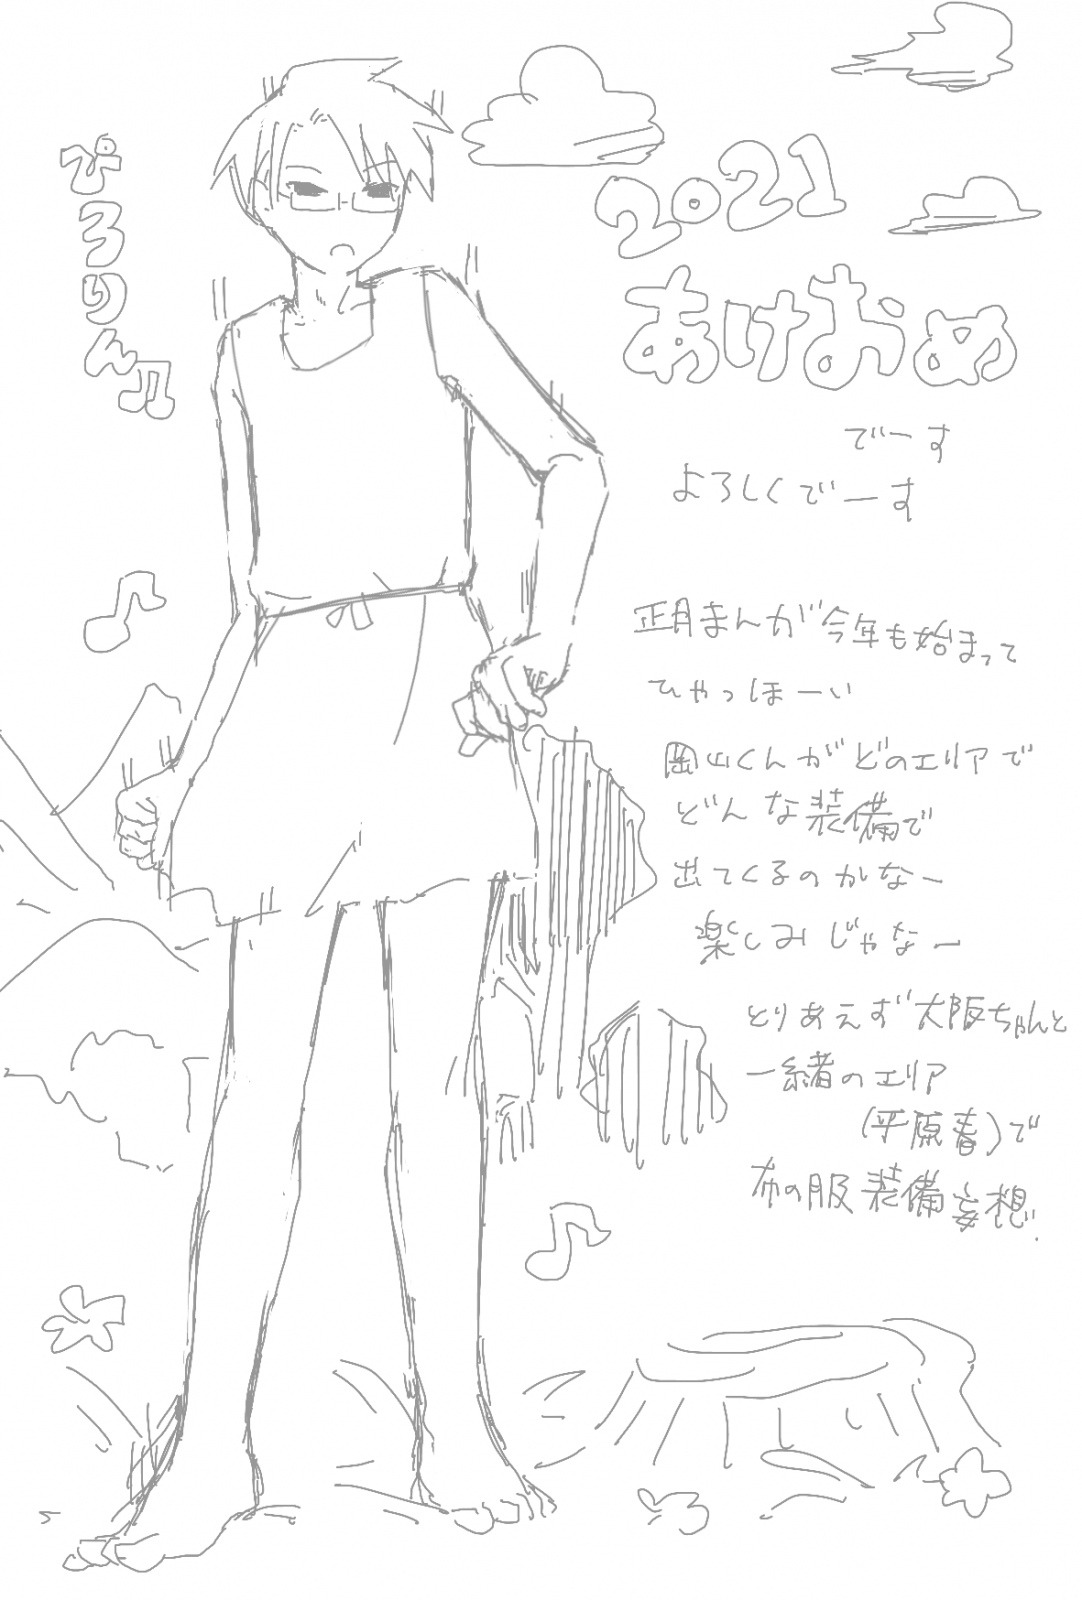 ぴろりん♫
2021
あけおめ
でーす
よろしくでーす
正月まんが今年も始まって
ひゃっほーい
岡山くんがどのエリアで
どんな装備で
出てくるのかなー
楽しみじゃなー
とりあえず大阪ちゃんと
一緒のエリア
(平原春)で
布の服装備妄想.